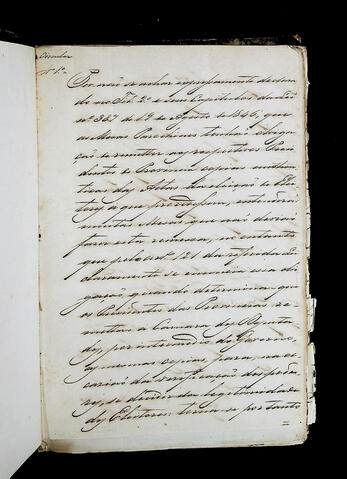 Circular
Nº 1º
Por não se achar expressamente declara
do no Titº 2º e seus Capitulos da Lei
nº 387 de 19 de Agosto de 1846, que
as Mesas Parochiaes tenhão obriga
ção de remetter aos respectivos Presi
dentes de Provincia copias authen
ticas das Actas das eleições de Elei
tores a que procederem, entenderão
muitas Mesas que não devião
fazer esta remessa, no entanto
que pelo artº 121 da referida Lei
claramente se enuncia essa obri
gação, quando determina que
os Presidentes das Provincias re
mettão á Camara dos Deputa
dos por intermedio do Governo
as mesmas copias, para, na oc
casião da verificação dos pode
res, se decidir da legitimidade
dos Eleitores: torna-se por tanto